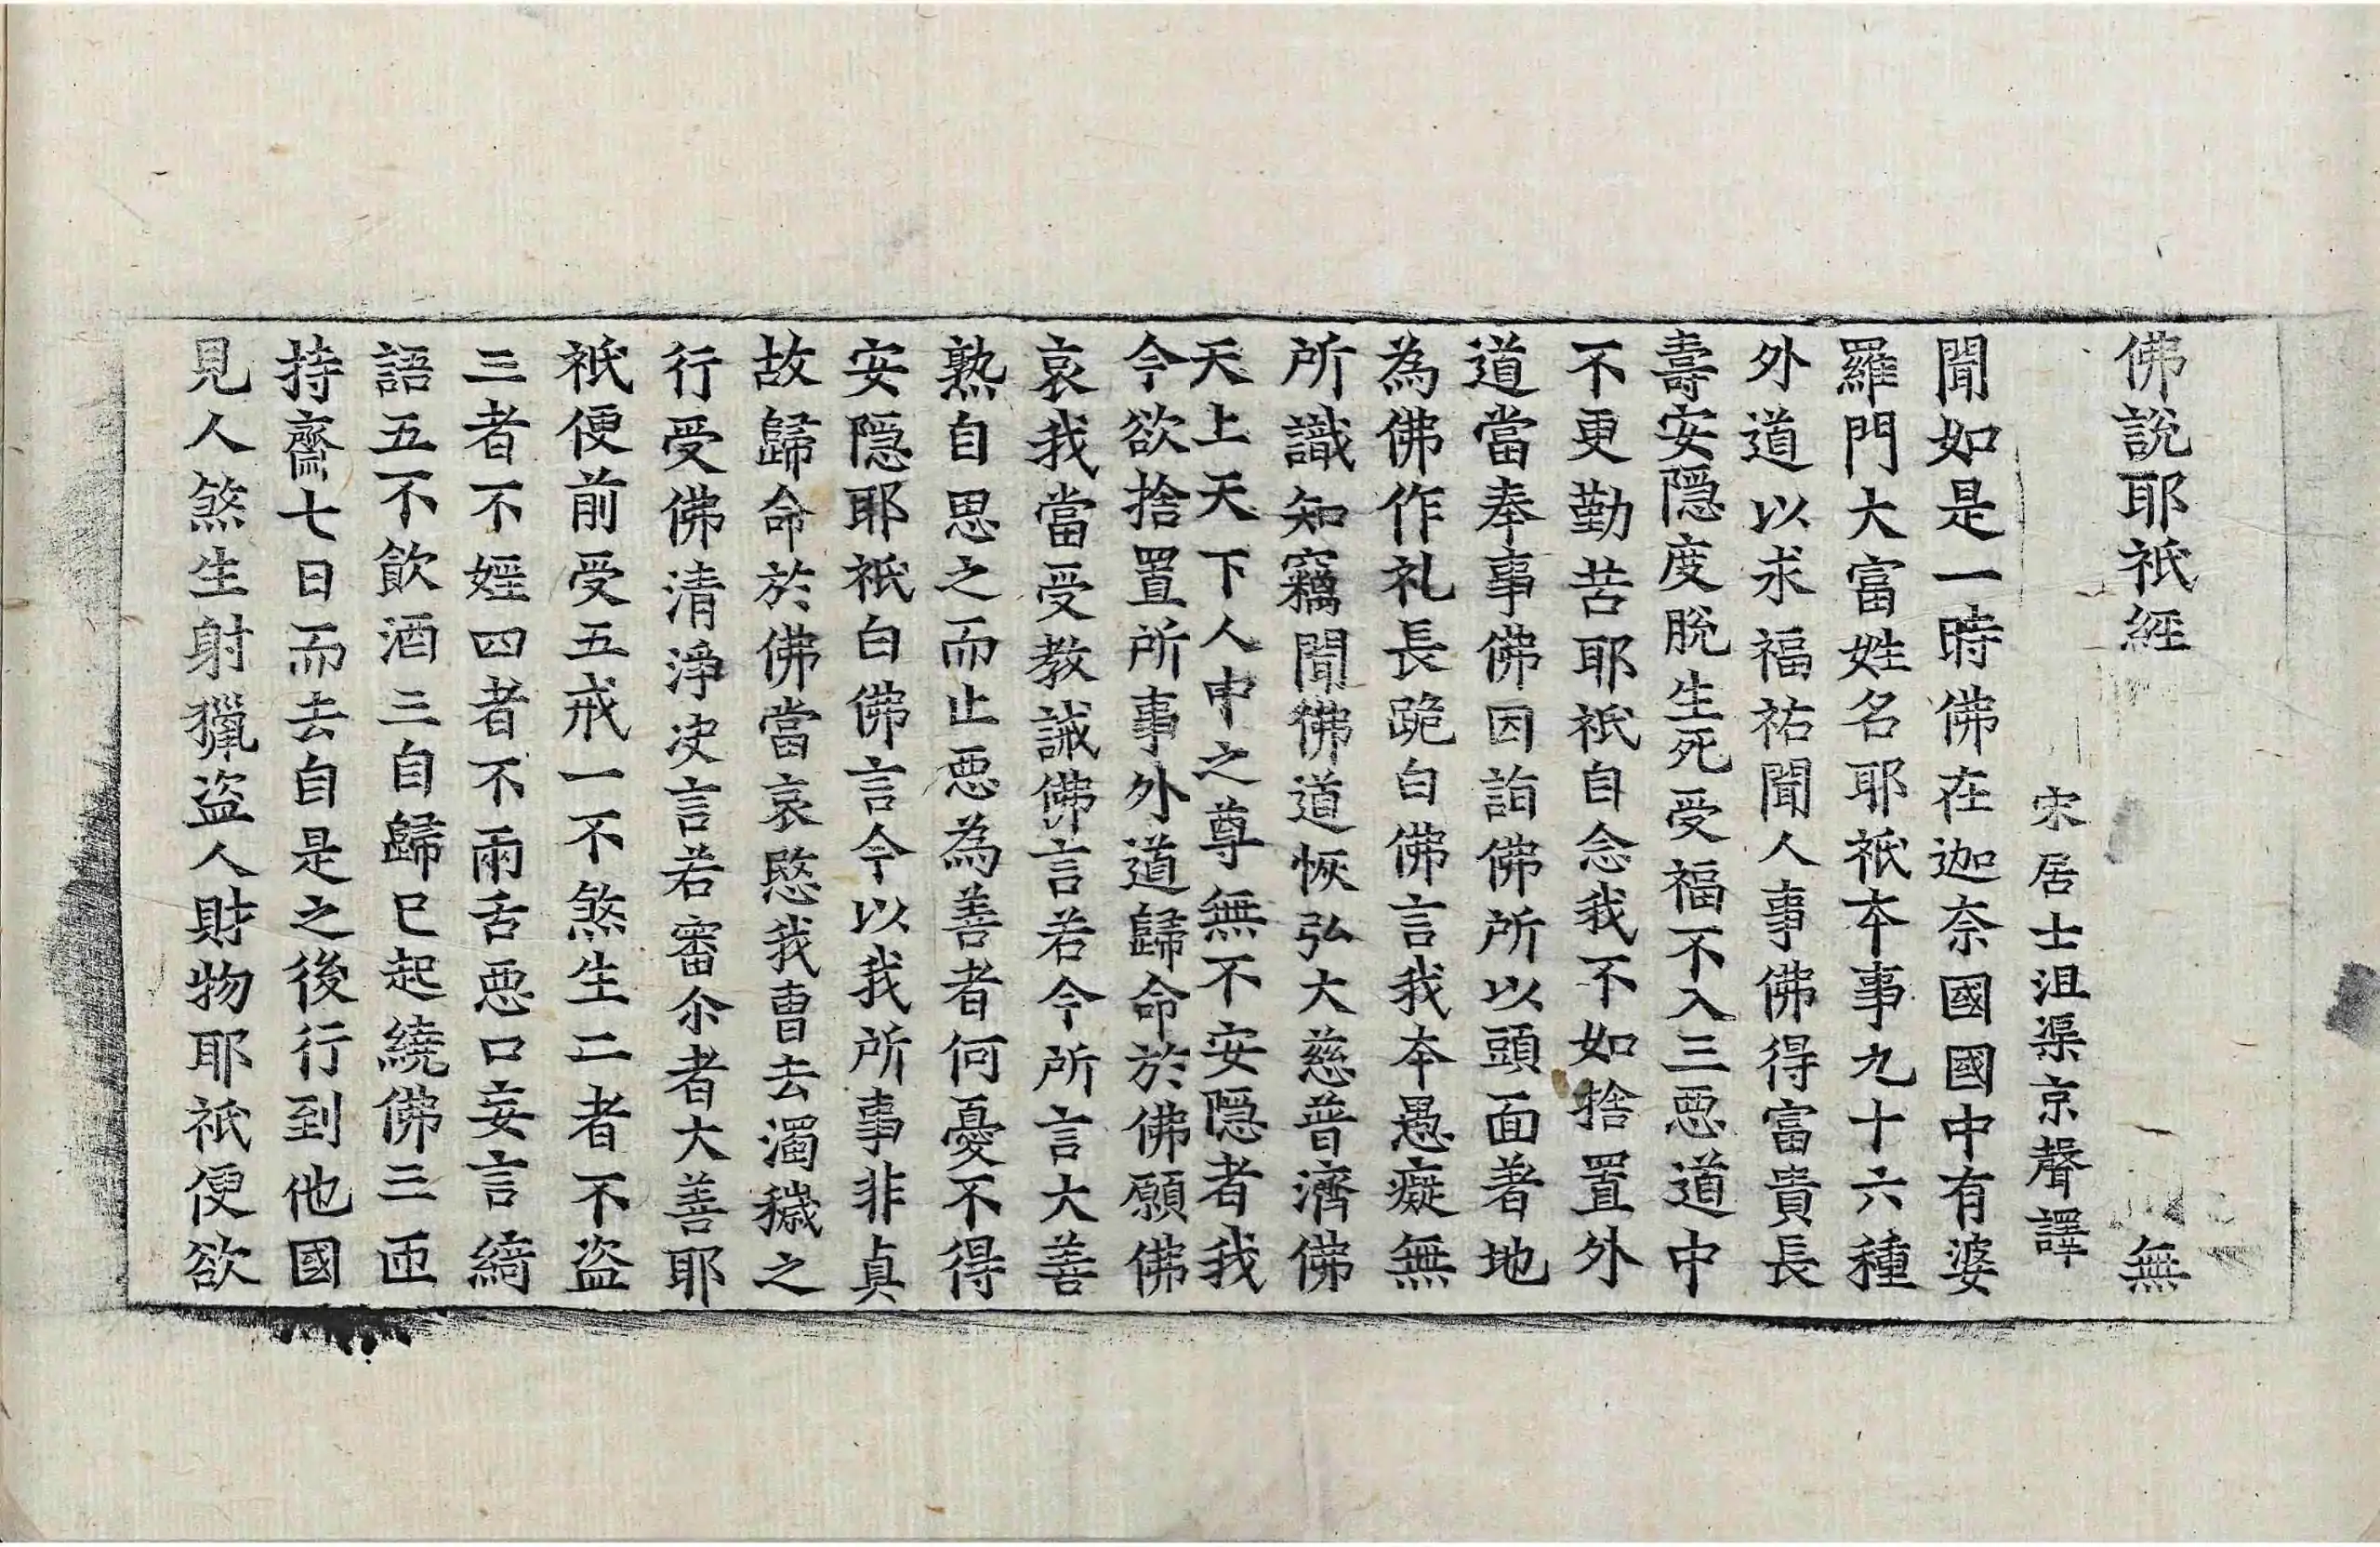 佛說耶祇經 無
宋居士沮渠京聲譯
聞如是一時佛在迦奈國國中有婆
羅門大富姓名耶祇夲事九十六種
外道以求福祐聞人事佛得富貴長
壽安隱度脫生死受福不入三惡道中
不更勤苦耶祇自念我不如捨置外
道當奉事佛因詣佛所以頭面著地
為佛作礼長跪白佛言我夲愚癡無
所識知竊聞佛道恢弘大慈普濟佛
天上天下人中之尊無不安隱者我
今欲捨置所事外道歸命於佛願佛
哀我當受教誡佛言若今所言大善
熟自思之而止惡為善者何憂不得
安隱耶祇白佛言今以我所事非真
故歸命於佛當哀愍我曹去濁穢之
行受佛清淨决言若審尒者大善耶
祇便前受五戒一不煞生二者不盜
三者不婬四者不兩舌惡口妄言綺
語五不飲酒三自歸已起繞佛三匝
持齋七日而去自是之後行到他國
見人煞生射獵盜人財物耶祇便欲